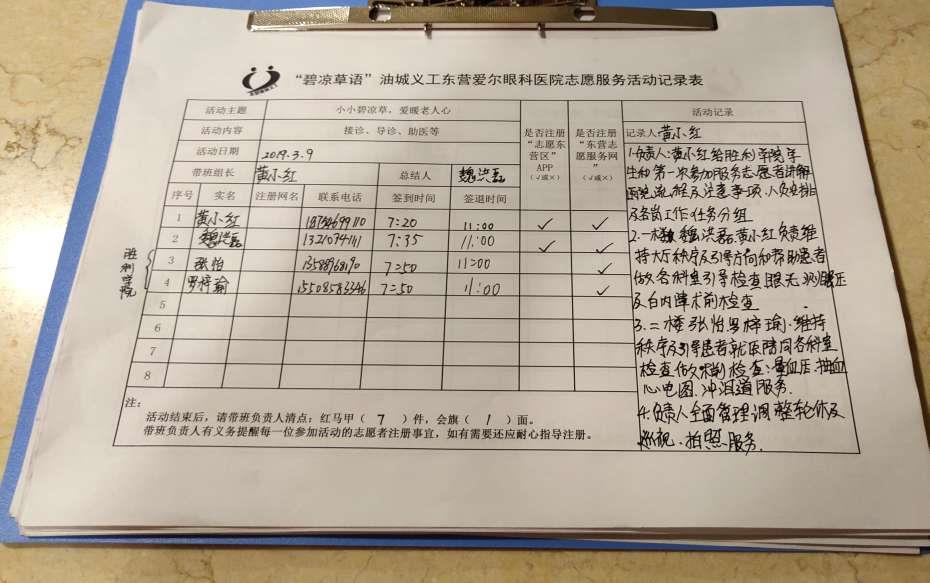 “碧凉草语”油城义工东营爱尔眼科医院志愿服务活动记录表
活动主题 小小碧凉草，爱暖老人心
活动内容 接诊、导诊、助医等
活动日期 2019.3.9
带班组长 黄小红 总结人 魏洪磊
序号 实名 注册网名 联系电话 签到时间 签退时间
是否注册
“志愿东
营区”
APP
（√或×）
是否注册
“东营志
愿服务网
”
（√或×）
1 黄小红 7:20 11:00 ✓ ✓
2 魏洪磊 7:35 11:00 ✓ ✓
胜利学院
3 张怡 7:50 11:00 ✓
4 罗梓瑜 15508583346 7:50 11:00 ✓
5
6
7
8
注：
活动结束后，请带班负责人清点：红马甲（ 7 ）件，会旗（ 1 ）面。
带班负责人有义务提醒每一位参加活动的志愿者注册事宜，如有需要还应耐心指导注册。
活动记录
记录人 黄小红
1.负责人:黄小红给胜利学院学
生和第一次参加服务志愿者讲解
医院流程及注意事项、人员安排
及各岗工作任务分组
2.一楼 魏洪磊.黄小红负责维
持大厅秩序及引导方向和帮助患者
做各科室引导检查眼压
及白内障术前检查
3.二楼张怡罗梓瑜.维持
秩序及引导患者就医陪同各科室
检查做术前检查:量血压.抽血
心电图.冲泪道服务.
4.负责人全面管理调整轮休及
巡视.拍照服务.